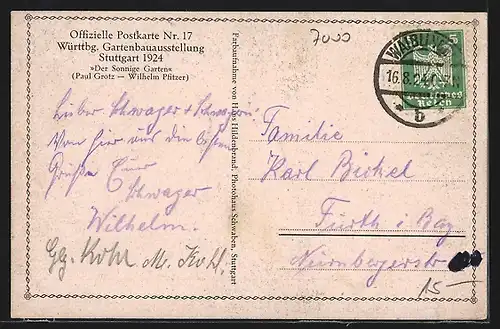 Offizielle Postkarte Nr. 17
Württbg. Gartenbauausstellung
Stuttgart 1924
»Der Sonnige Garten«
(Paul Grotz — Wilhelm Pfitzer)
Lieber Schwager & Schwägerin!
Von hier aus die besten
Grüße Euer
Schwager
Wilhelm.
Gg. Kohr M. Kohl
Farbaufnahme von Hans Hildenbrand, Photohaus Schwaben, Stuttgart
7000
WAIBLINGEN
16.8.24
b
5
Deutsches
Reich
Familie
Karl Bickel
Fürth i. Bay
Nürnbergerstr
15-